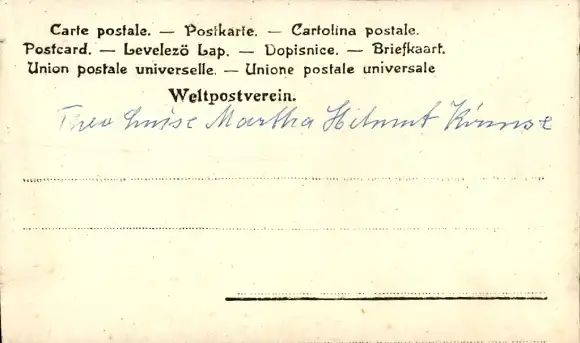 Carte postale. — Postkarte. — Cartolina postale.
Postcard. — Levelező Lap. — Dopisnice. — Briefkaart.
Union postale universelle. — Unione postale universale
Weltpostverein.
Theo Luise Martha Helmut